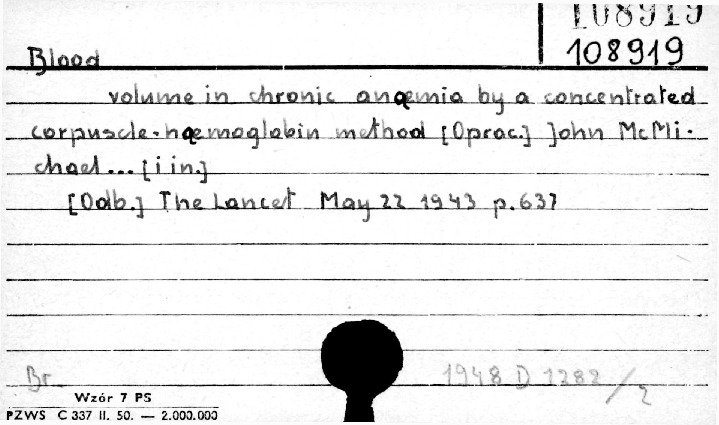 108919
108919
Blood
volume in chronic anæmia by a concentrated
corpuscle-hæmoglabin method [Oprac.] John McMi-
chael... [i in.]
[Odb.] The Lancet May 22 1943 p. 637
Br.
1948 D 1282/2
Wzór 7 PS
PZWS C 337 II. 50. — 2.000.000